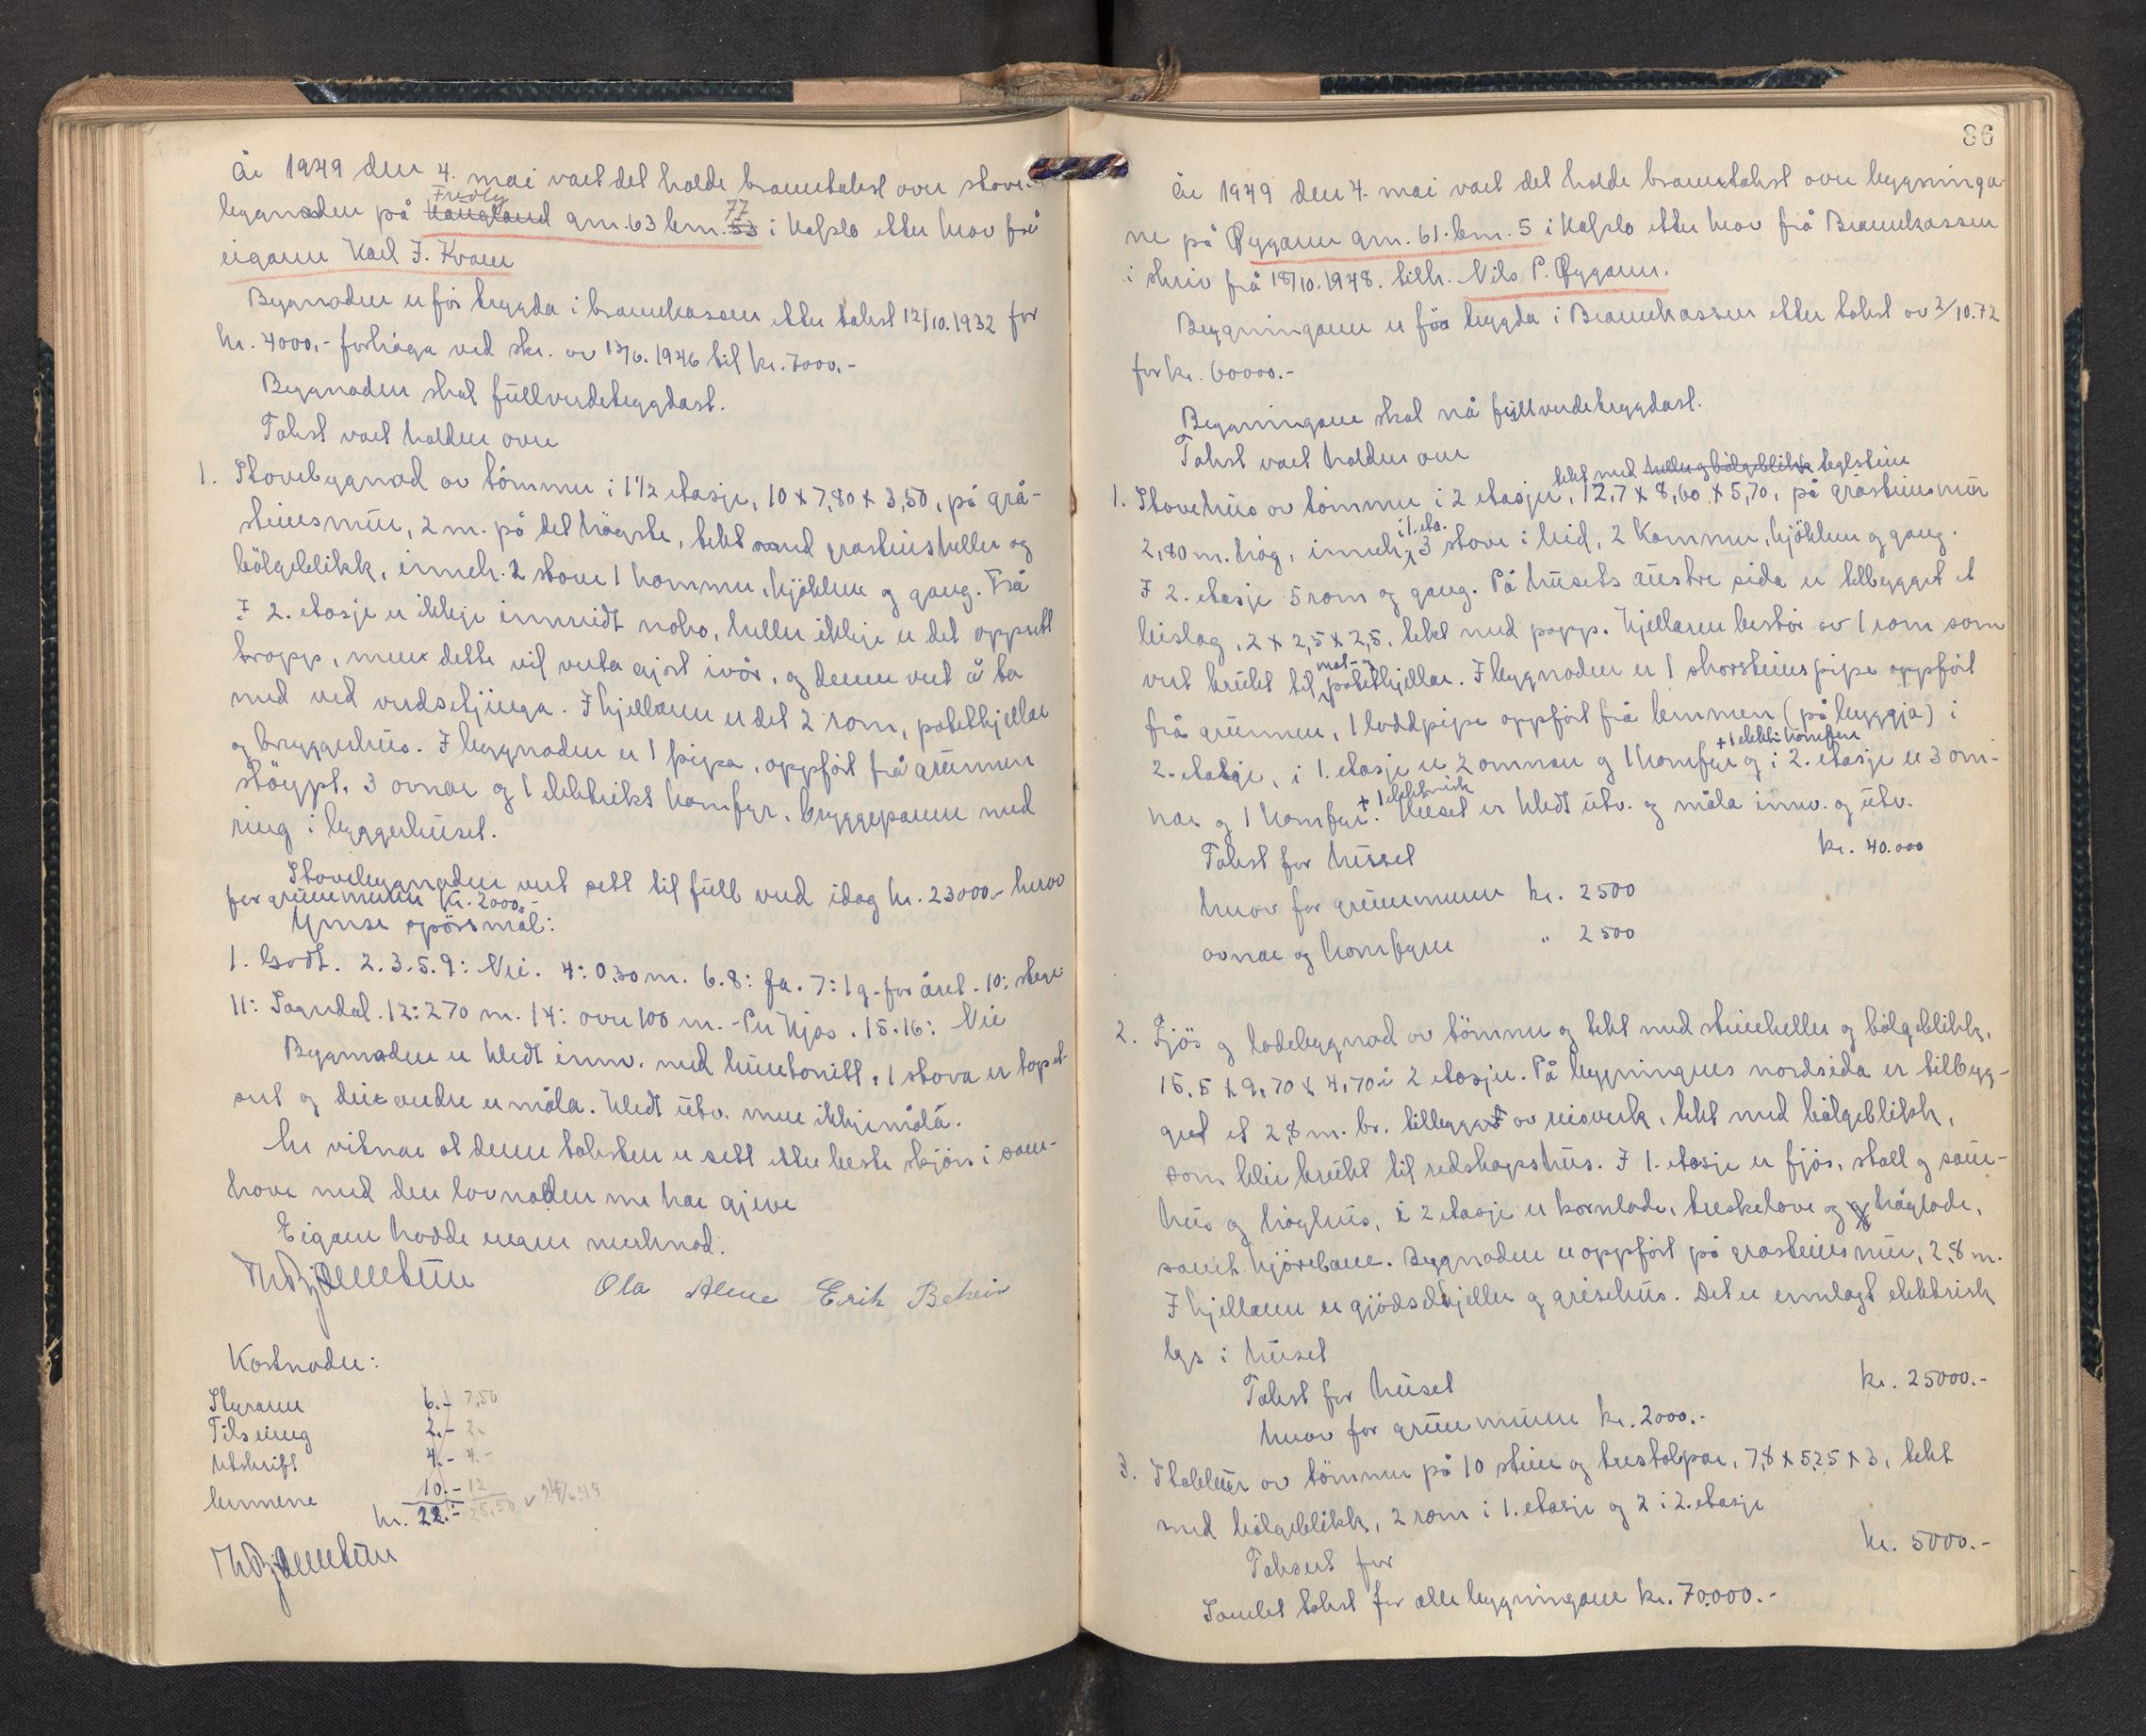 År 1949 den 4. mai vart det halde branntakst over stove-
Fredly
77
bygnaden på Haugland gnr. 63 bnr. 53 i Hafslo etter krav frå
eigaren Karl J. Kvam
Bygnaden er før trygda i brannkassen etter takst 12/10.1932 for
kr. 4000.- forhøga ved skr. av 13/6. 1946 til kr. 7000.-
Bygnaden skal fullverdetrygdast.
Takst vart halden over
1. Stovebygnad av tømmer i 1 1/2 etasje, 10 x 7,80 x 3,50, på grå-
steinsmur, 2 m. på det høgste, tekt med grasteinsheller og
bølgeblikk, inneh. 2 stover 1 kammer, kjøkken og gang.
I 2. etasje er ikkje innreidt noko, heller ikkje er det oppsett
tropp, men dette vil verta gjort i vår, og denne vert å ta
med ved verdsetjinga. I kjellaren er det 2 rom, potetkjellar
og bryggerhus. I bygnaden er 1 pipa, oppført frå grunnen
støypt, 3 ovnar og 1 elektrikt komfyr, bryggepanne med
ring i bryggerhuset.
Stovebygnaden vert sett til full verd idag kr. 23000.- herav
for grunnmuren kr. 2000.-
Ymse spørsmål:
1. Godt. 2.3.5.9: Nei. 4: 0,30 m. 6.8: Ja. 7: 1 g. for året. 10: stige
11: Sogndal. 12: 270 m. 14: over 100 m. - Per Kjos. 15.16: Nei
Bygnaden er kledt innv. med huntonitt, 1 stova er tapet-
sert og dei andre er måla. Kledt utv. men ikkje måla.
Me vitnar at denne taksten er sett etter beste skjøn i sam-
høve med den lovnaden me har gjeve
Eigaren hadde ingen merknad.
Ola Alme Erik Beheim
Kostnader:
Styraren 6.- 7,50
Tilseiing 2.- 2.
Utskrift 4.- 4.-
Mennene 10.- 12
kr. 22.- 25,50 24/6.49
86
År 1949 den 4. mai vart det halde branntakst over bygninga-
ne på Øygaren gnr. 61. bnr. 5 i Hafslo etter krav frå Brannkassen
i skriv frå 18/10.1948. tilh. Nils P. Øygaren.
Bygningane er før trygda i Brannkassen etter takst av 2/10.42
for kr. 60000.-
Bygningane skal nå fullverdetrygdast.
Takst vart halden over
tekt med heller og bølgeblikk teglstein
1. Stovehus av tømmer i 2 etasjer, 12,7 x 8,60 x 5,70, på gråsteinsmur
i 1. eta.
2,80 m. høg, inneh. 3 stover i breid, 2 kammer, kjøkken og gang.
I 2. etasje 5 rom og gang. På husets austre sida er tilbygget et
bislag, 2 x 2,5 x 2,5, tekt med papp. Kjellaren består av 1 rom som
mat- og
vert brukt til potetkjellar. I bygnaden er 1 skorsteinspipe oppført
frå grunnen, 1 loddpipe oppført frå lemmen (på byggja) i
+ 1 elekt. komfyr
2. etasje, i 1. etasje er 2 omnar og 1 komfyr og i 2. etasje er 3 om-
+ 1 elektrisk
nar og 1 komfyr. Huset er kledt utv. og måla innv. og utv.
Takst for huset kr. 40.000
herav for grunnmuren kr. 2500
ovnar og komfyren " 2500
2. Fjøs og ladebygnad av tømmer og tekt med steinheller og bølgeblikk,
15,5 x 9,70 x 4,70 i 2 etasjer. På bygningens nordsida er tilbyg-
get et 2,8 m. br. tilbygg av reisverk, tekt med bølgeblikk,
som blir brukt til redskapshus. I 1. etasje er fjøs, stall og saue-
hus og høghus, i 2 etasje er kornlade, treskelove og høglade,
samt kjørebane. Bygnaden er oppført på grasteinsmur, 2,8 m.
I kjellaren er gjødselkjeller og grisehus. Det er innlagt elektrisk
lys i huset
Takst for huset kr. 25000.-
herav for grunnmuren kr. 2000.-
3. Stabbur av tømmer på 10 stein og trestolpar, 7,8 x 5,25 x 3, tekt
med bølgeblikk, 2 rom i 1. etasje og 2 i 2. etasje
Taksert for kr. 5000.-
Samlet takst for alle bygningane kr. 70.000.-